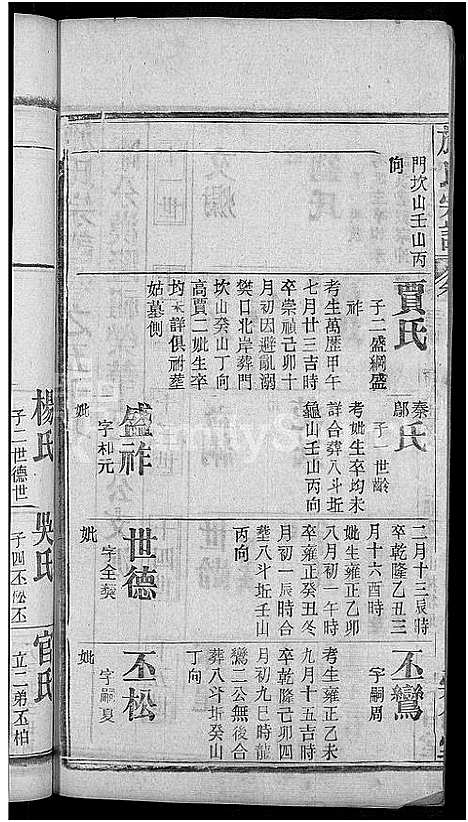 門坎山壬山丙
向
賈氏
子二盛綱盛
祚
考生萬歷甲午
七月廿三吉時
卒崇禎己卯十
月初因避亂溺
樊口北岸葬門
坎山癸山丁向
高賈二妣生卒
均未詳俱祔塟
姑墓側
秦
鄔
氏
子一世齡
考妣生卒均未
詳合葬八斗坵
龜山壬山丙向
盛祚
字和元
妣
楊氏
子二世德世
二月十三辰時
卒乾隆乙丑三
月十六酉時
妣生雍正乙卯
八月初一午時
卒雍正癸丑冬
月初一辰時合
塟八斗坵壬山
丙向
世德
字全葵
妣
吳氏
子四丕松丕
丕鸞
字嗣周
考生雍正乙未
九月十五吉時
卒乾隆己卯四
月初九巳時龍
鸞二公無後合
葬八斗坵癸山
丁向
丕松
字嗣夏
妣
官氏
立二弟丕柏